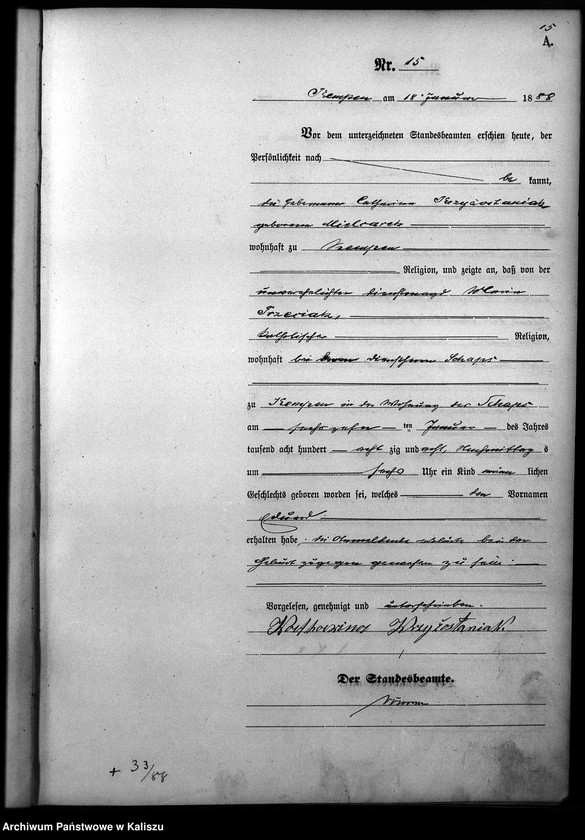 15
A.
Nr. 15
Kempen am 18. Januar 1888
Vor dem unterzeichneten Standesbeamten erschien heute, der
Persönlichkeit nach
be kannt,
die Hebamme Catharina Krzyżostaniak
geborene Mielcarek
wohnhaft zu Kempen
Religion, und zeigte an, daß von der
unverehelichten Dienstmagd Maria
Trzeciak,
katholischer Religion,
wohnhaft bei Dienstherrn Schaps
zu Kempen in der Wohnung des Schaps
am sechszehn ten Januar des Jahres
tausend acht hundert acht zig und acht, Nachmittag s
um sechs Uhr ein Kind männ lichen
Geschlechts geboren worden sei, welches den Vornamen
Eduard
erhalten habe. die Anmeldende welche bei der
Geburt zugegen gewesen zu sein.
Vorgelesen, genehmigt und unterschrieben.
Katharina Krzyżostaniak
Der Standesbeamte.
+ 33/88
Archiwum Państwowe w Kaliszu